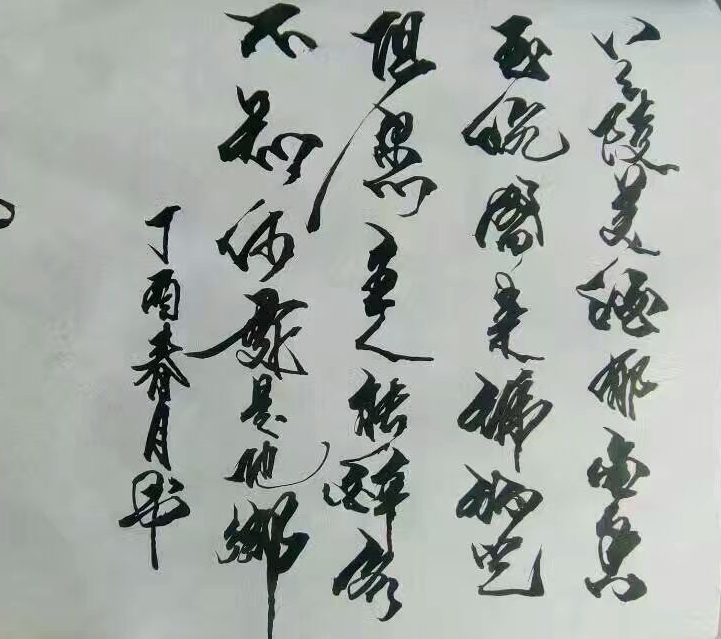 兰陵美酒郁金香
玉碗盛来琥珀光
但愿主人能醉客
不知何处是他乡
丁酉春月书